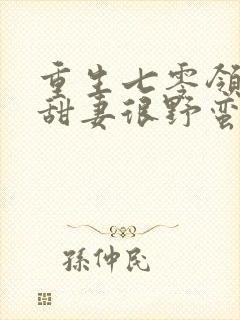 重生七零领
甜妻很野蛮
孫仲民